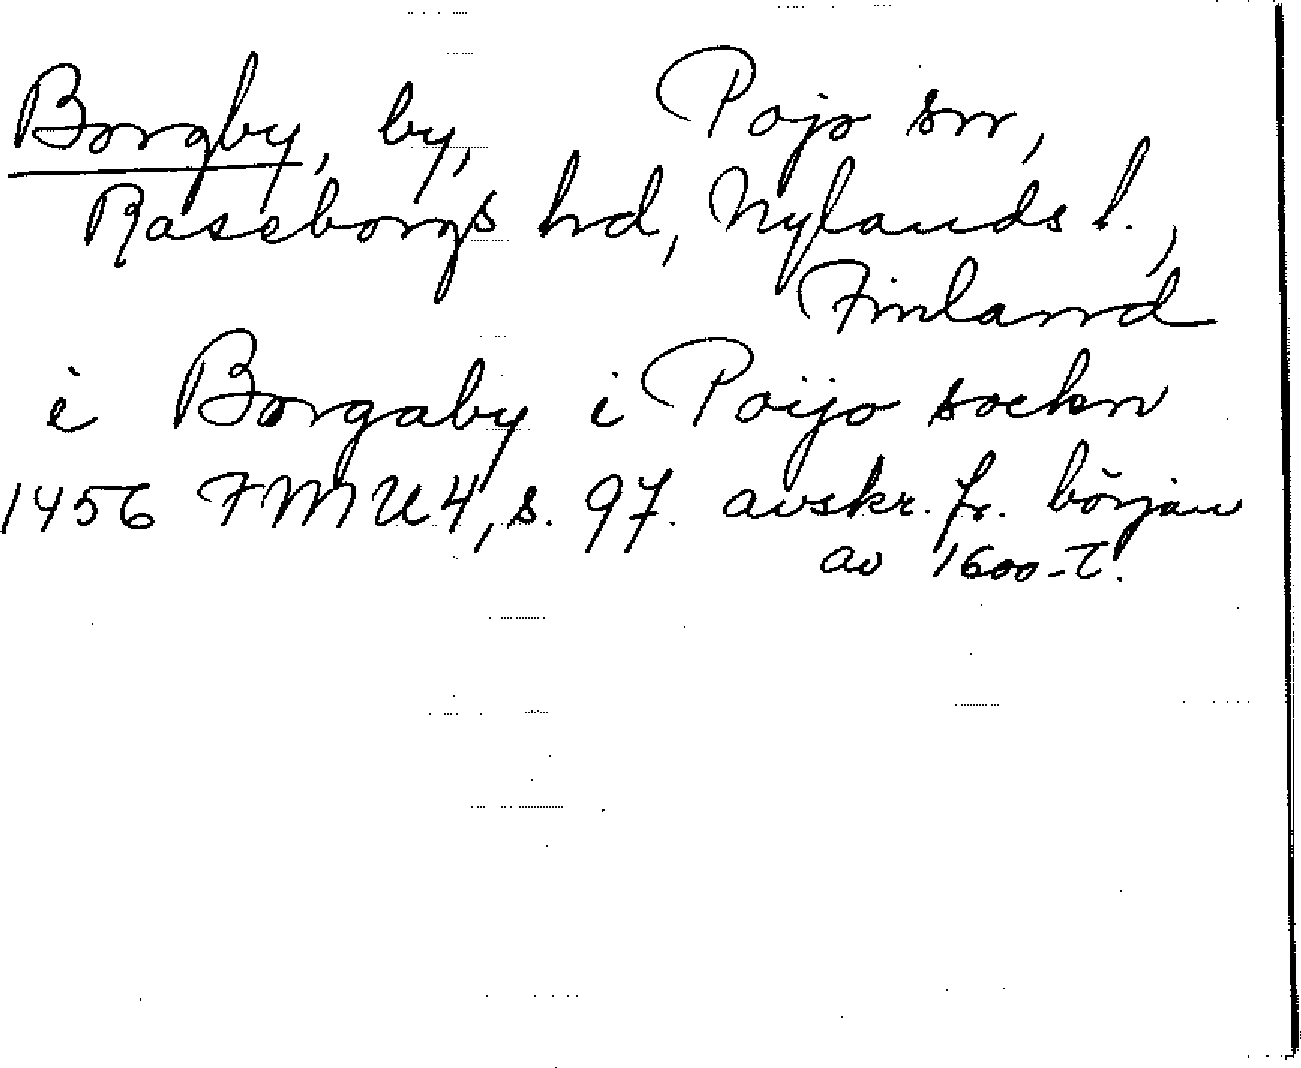 Borgby, by, Pojo sn,
Raseborgs hd, Nylands l.,
Finland
i Borgaby i Poijo sockn
1456 FMU 4, s. 97. avskr. fr. början
av 1600-t.